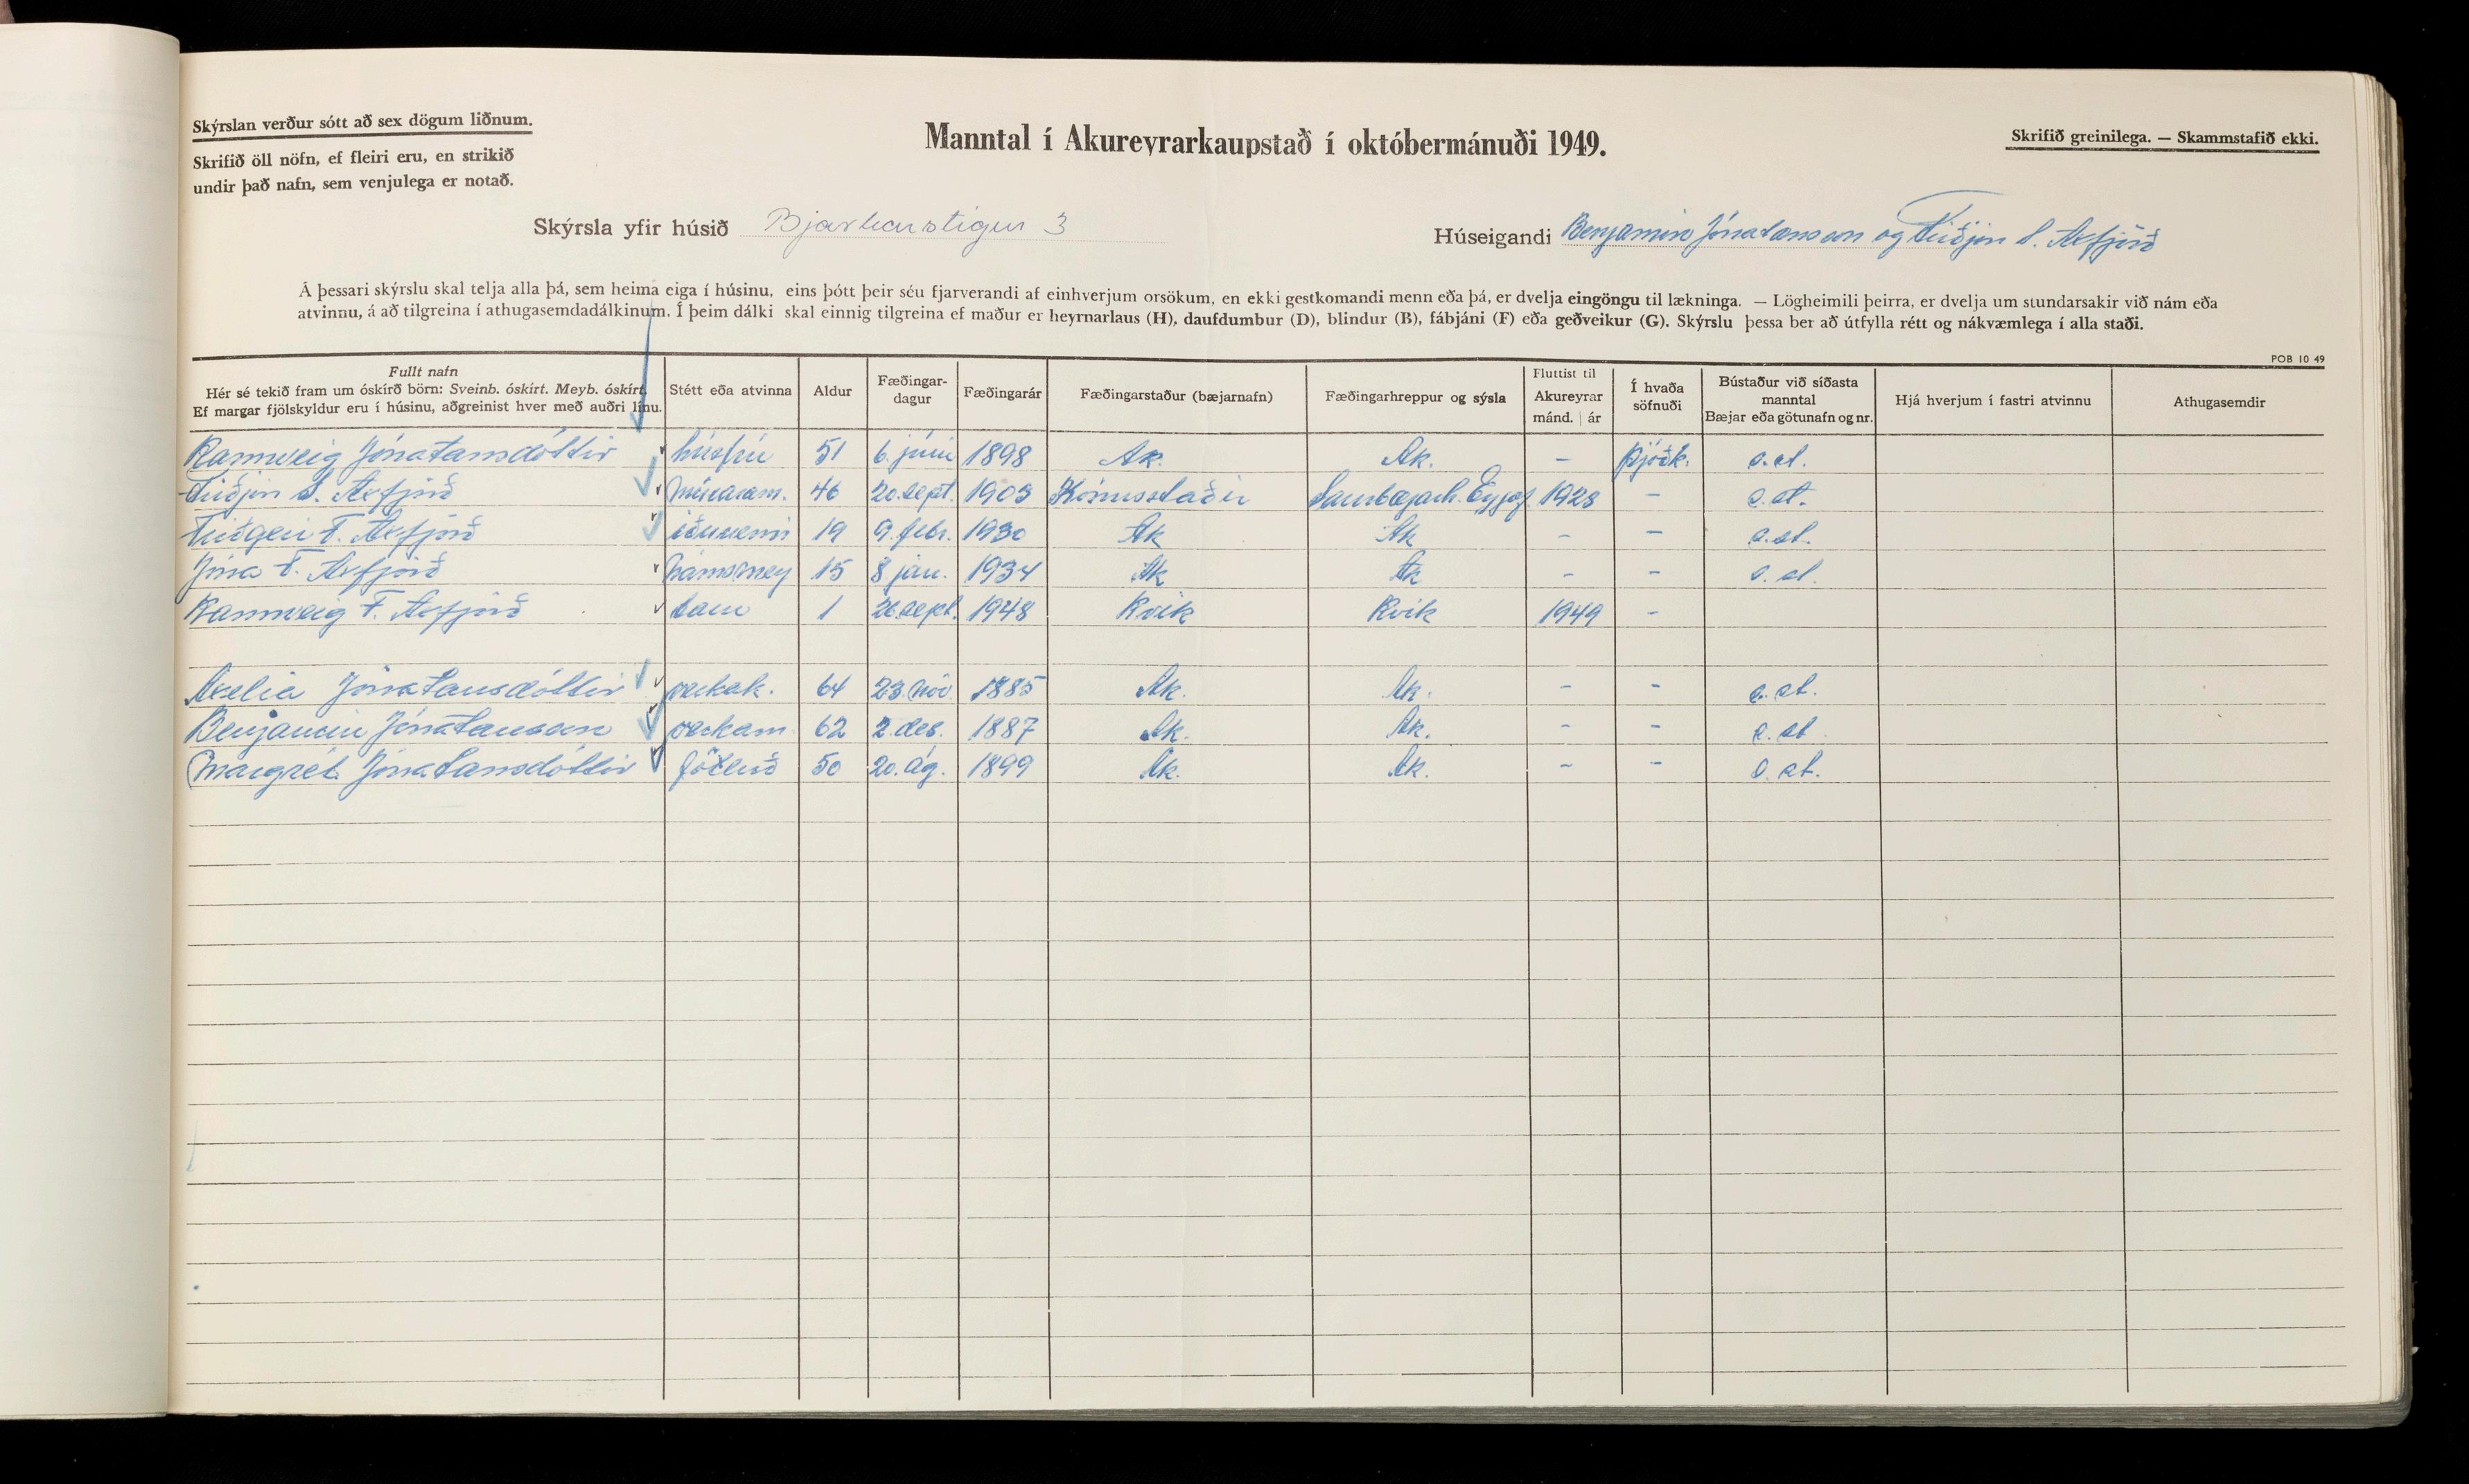 Skýrslan verður sótt að sex dögum liðnum.
Skrifið öll nöfn, ef fleiri eru, en strikið
undir það nafn, sem venjulega er notað.
Manntal í Akureyrarkaupstað í októbermánuði 1949.
Skrifið greinilega. — Skammstafið ekki.
Skýrsla yfir húsið Bjarkarstígur 3
Húseigandi Benjamín Jónatansson og Friðjón S. Axfjörð
Á þessari skýrslu skal telja alla þá, sem heima eiga í húsinu, eins þótt þeir séu fjarverandi af einhverjum orsökum, en ekki gestkomandi menn eða þá, er dvelja eingöngu til lækninga. — Lögheimili þeirra, er dvelja um stundarsakir við nám eða
atvinnu, á að tilgreina í athugasemdadálkinum. Í þeim dálki skal einnig tilgreina ef maður er heyrnarlaus (H), daufdumbur (D), blindur (B), fábjáni (F) eða geðveikur (G). Skýrslu þessa ber að útfylla rétt og nákvæmlega í alla staði.
POB 10 49
Fullt nafn
Hér sé tekið fram um óskírð börn: Sveinb. óskírt. Meyb. óskírt.
Ef margar fjölskyldur eru í húsinu, aðgreinist hver með auðri línu.
Stétt eða atvinna
Aldur
Fæðingar-
dagur
Fæðingarár
Fæðingarstaður (bæjarnafn)
Fæðingarhreppur og sýsla
Fluttist til
Akureyrar
mánd. | ár
Í hvaða
söfnuði
Bústaður við síðasta
manntal
Bæjar eða götunafn og nr.
Hjá hverjum í fastri atvinnu
Athugasemdir
Rannveig Jónatansdóttir húsfrú 51 6. júní 1898 Ak. Ak. – Þjóðk. s.st.
Friðjón S. Axfjörð múraram. 46 20. sept. 1903 Saurbæjarh. Eyjaf 1928 – s.st.
Friðgeir F. Axfjörð iðnnemi 19 9. febr. 1930 Ak Ak – – s.st.
Jóna F. Axfjörð námsmey 15 8 jan. 1934 Ak Ak – – s.st.
Rannveig F. Axfjörð barn 1 26. sept. 1948 Rvík Rvík 1949 –
Axelía Jónatansdóttir verkak. 64 23. nóv. 1885 Ak. Ak. – – s.st.
Benjamín Jónatansson verkam. 62 2. des. 1887 Ak. Ak. – – s.st.
Margrét Jónatansdóttir 50 20. ág. 1899 Ak. Ak. – – s.st.